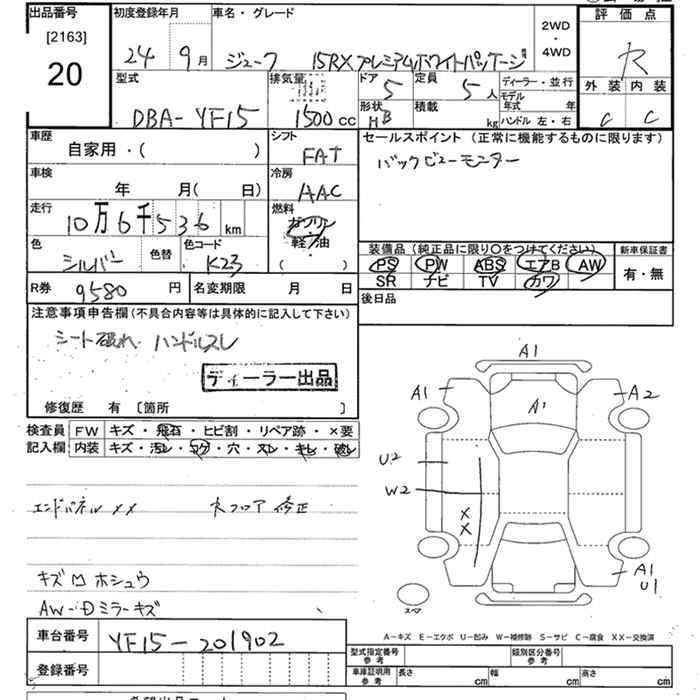 出品番号 初度登録年月 車名・グレード 2WD・4WD 評価点
[2163]
20
24年 9月 ジューク 15RX プレミアムホワイトパッケージ R
型式 排気量 ドア 定員 ディーラー・並行 外装 内装
DBA-YF15 1500cc 5 5人 モデル年式 年
形状 HB 積載 kg ハンドル 左・右 C C
車歴 シフト セールスポイント (正常に機能するものに限ります)
自家用・( ) FAT バックビューモニター
車検 冷房
年 月( 日) AAC
走行 燃料
10万6千536km ガソリン・軽油・( )
色 シルバー 色替 色コード K23
装備品(純正品に限り○をつけてください) 新車保証書
PS PW ABS エアB AW 有・無
SR ナビ TV カワ
R券 9580円 名変期限 月 日 後日品
注意事項申告欄(不具合内容等は具体的に記入して下さい)
シート破れ ハンドルスレ
ディーラー出品
修復歴 有 〔箇所 〕
検査員 FW キズ・飛石・ヒビ割・リペア跡・×要
記入欄 内装 キズ・汚レ・コゲ・穴・スレ・キレ・破レ
エンドパネル ××
フロア 修正
キズ M ホシュウ
AW-Dミラーキズ
A1
A1
A1
A2
U2
W2
××
A1
U1
スペア
A-キズ E-エクボ U-凹み W-補修跡 S-サビ C-腐食 XX-交換済
車台番号 YF15-201902
登録番号
型式指定番号 参考 類別区分番号 参考
車庫証明用 参考 長さ cm 幅 cm 高さ cm